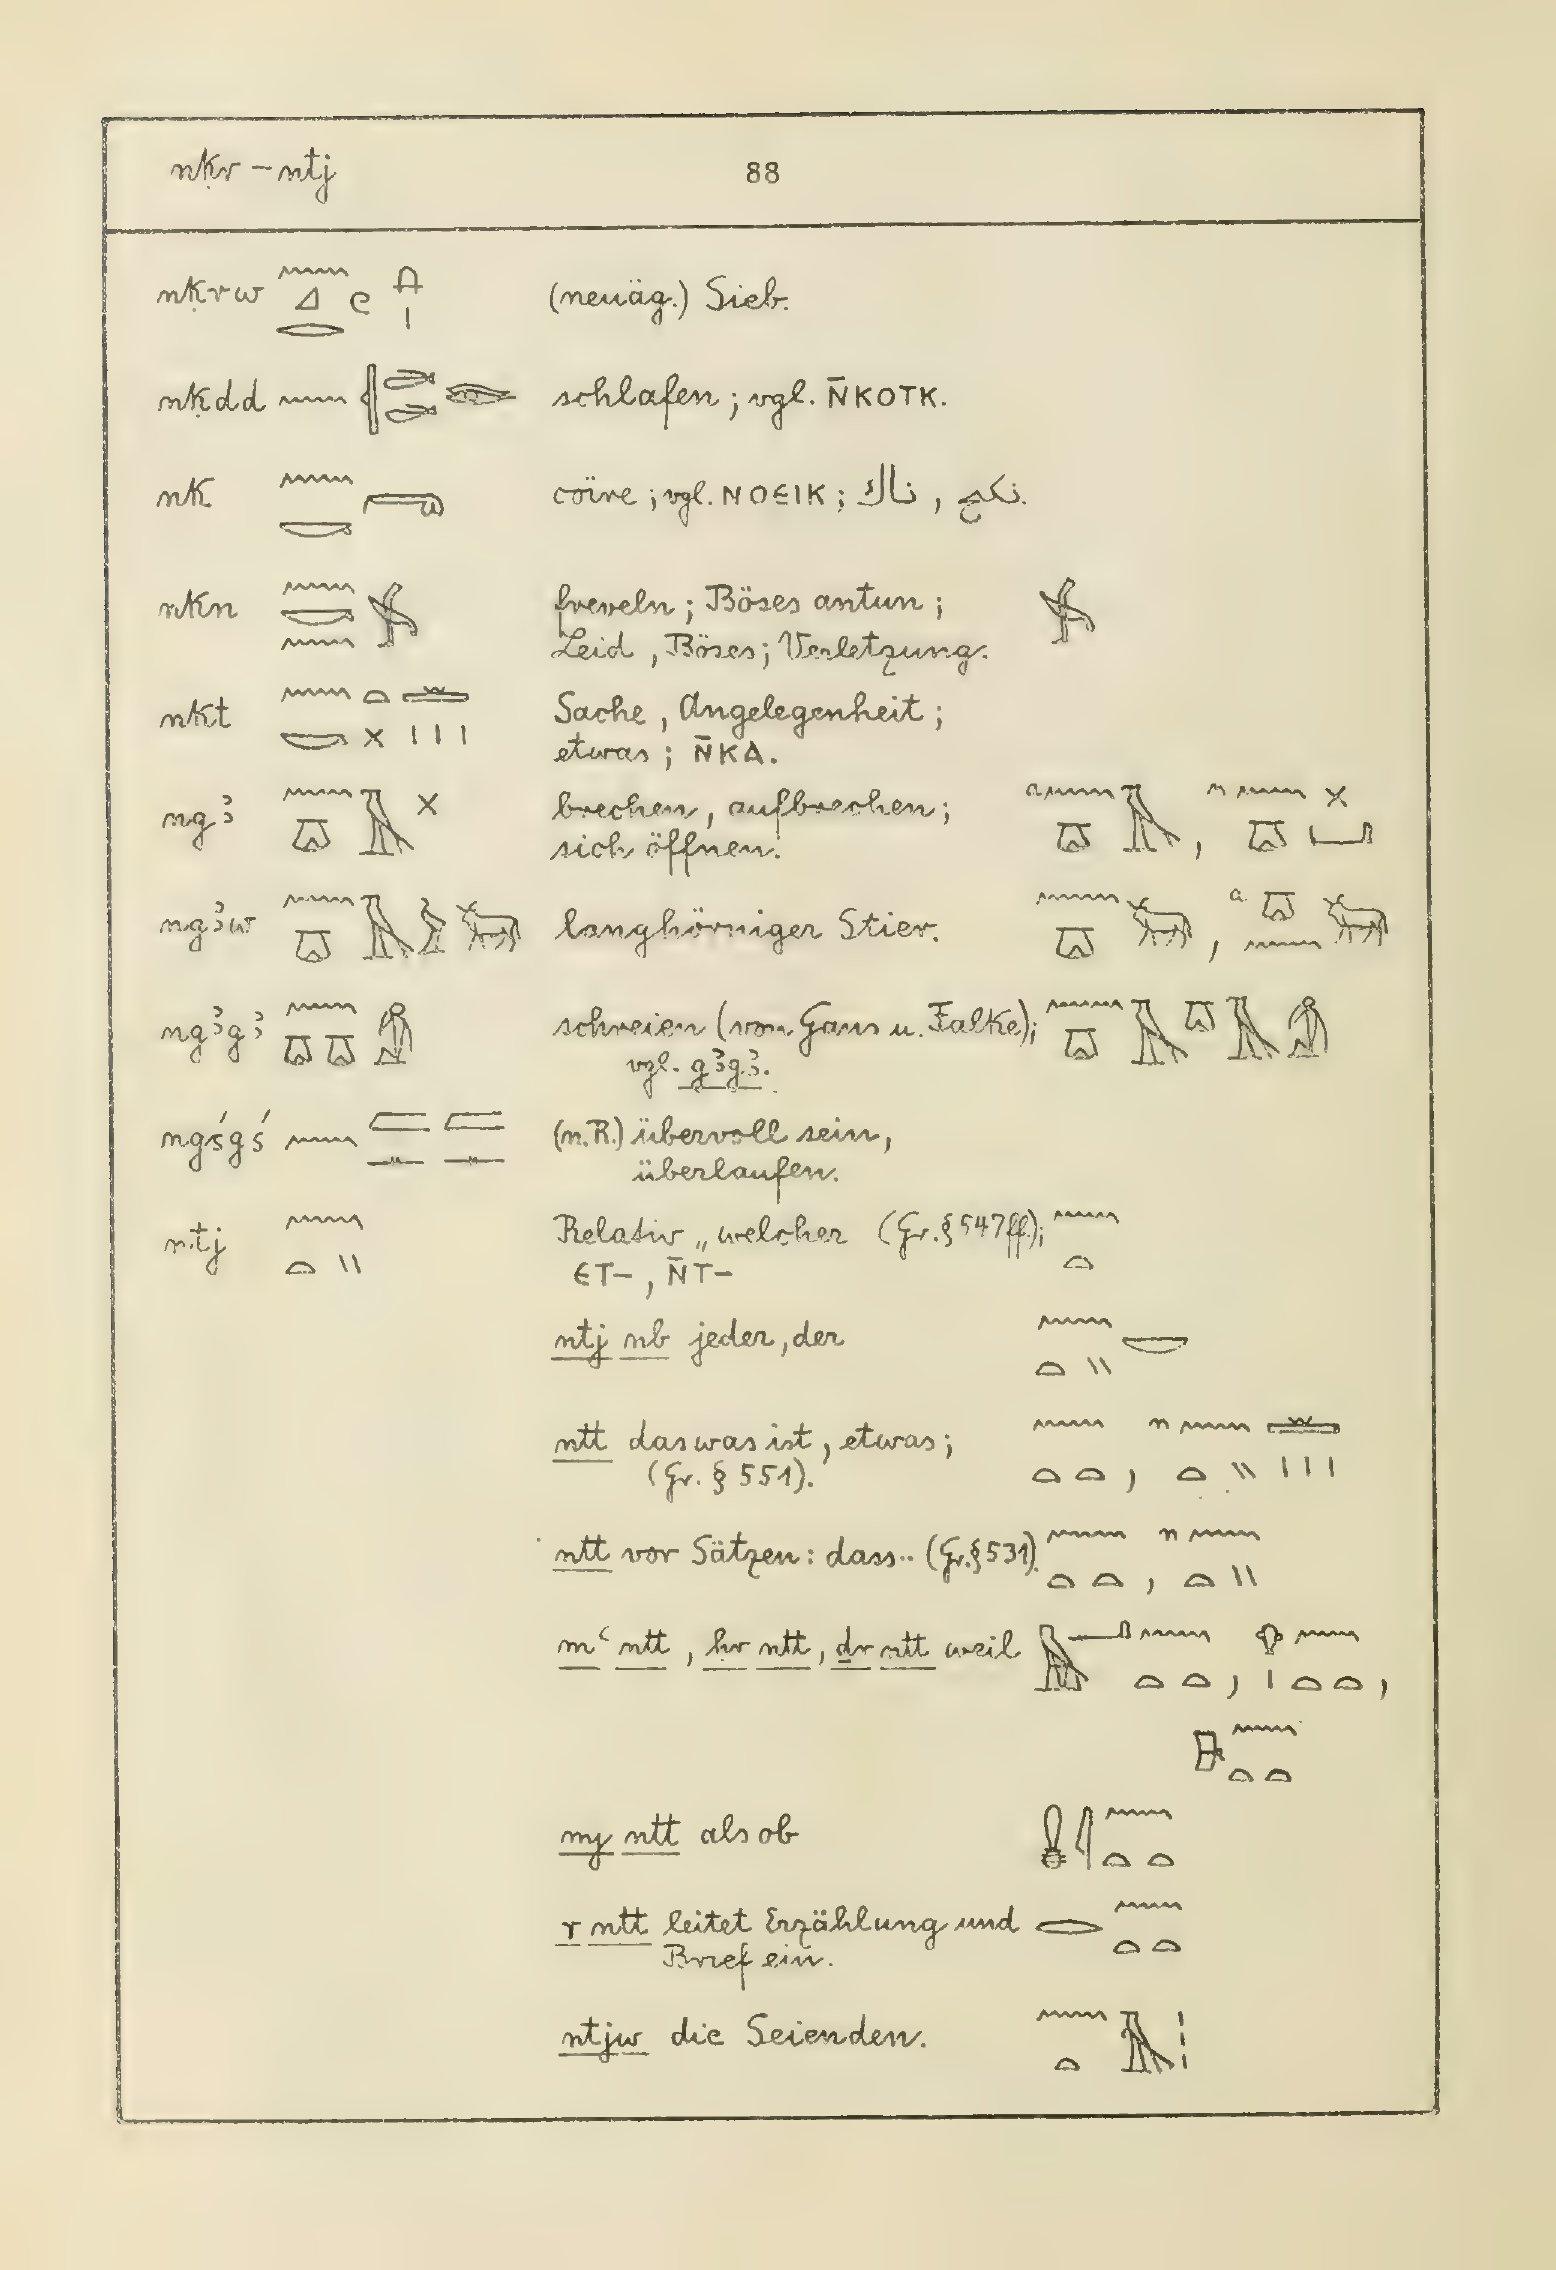 nḳr – ntj 88
nḳrw (neuäg.) Sieb.
nḳdd schlafen; vgl. N̄KOTK.
nk coïre; vgl. NOЄIK; ناك, نكح.
nkn freveln; Böses antun;
Leid, Böses; Verletzung.
nkt Sache, Angelegenheit;
etwas; N̄KA.
ngꜣ brechen, aufbrechen; a , n
sich öffnen.
ngꜣw langhörniger Stier. , a.
ngꜣgꜣ schreien (von Gans u. Falke);
vgl. gꜣgꜣ.
ngśgś (n.R.) übervoll sein,
überlaufen.
ntj Relativ „welcher (Gr. § 547ff.);
ЄT–, N̄T–
ntj nb jeder, der
ntt das was ist, etwas; n
(Gr. § 551). ,
ntt vor Sätzen: dass.. (Gr. § 531). n
,
mꜥ ntt, ḥr ntt, ḏr ntt weil
, ,
my ntt als ob
r ntt leitet Erzählung und
Brief ein.
ntjw die Seienden.